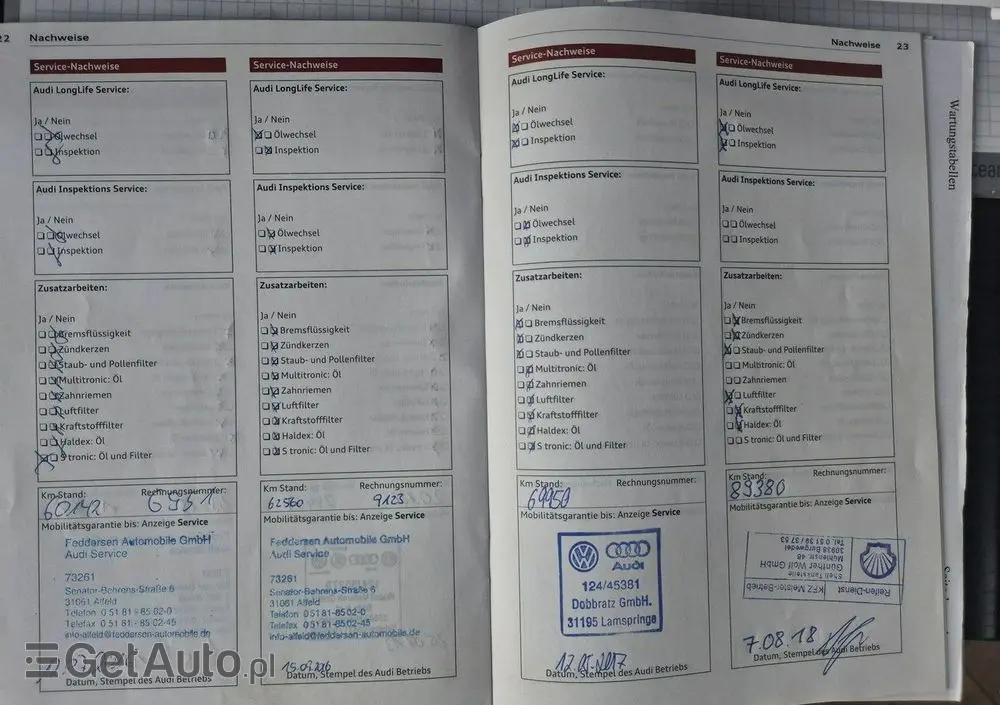 22 Nachweise
Service-Nachweise
Audi LongLife Service:
Ja / Nein
Ölwechsel
Inspektion
Audi Inspektions Service:
Ja / Nein
Ölwechsel
Inspektion
Zusatzarbeiten:
Ja / Nein
Bremsflüssigkeit
Zündkerzen
Staub- und Pollenfilter
Multitronic: Öl
Zahnriemen
Luftfilter
Kraftstofffilter
Haldex: Öl
S tronic: Öl und Filter
Km Stand: Rechnungsnummer:
60142
Mobilitätsgarantie bis: Anzeige Service
Feddersen Automobile GmbH
Audi Service
73261
Senator-Behrens-Straße 6
31061 Alfeld
Telefon 0 51 81 - 85 02-0
Telefax 0 51 81 - 85 02-45
info-alfeld@feddersen-automobile.de
Datum, Stempel des Audi Betriebs
Service-Nachweise
Audi LongLife Service:
Ja / Nein
Ölwechsel
Inspektion
Audi Inspektions Service:
Ja / Nein
Ölwechsel
Inspektion
Zusatzarbeiten:
Ja / Nein
Bremsflüssigkeit
Zündkerzen
Staub- und Pollenfilter
Multitronic: Öl
Zahnriemen
Luftfilter
Kraftstofffilter
Haldex: Öl
S tronic: Öl und Filter
Km Stand: Rechnungsnummer:
62560 9123
Mobilitätsgarantie bis: Anzeige Service
Feddersen Automobile GmbH
Audi Service
73261
Senator-Behrens-Straße 6
31061 Alfeld
Telefon 0 51 81 - 85 02-0
Telefax 0 51 81 - 85 02-45
info-alfeld@feddersen-automobile.de
Datum, Stempel des Audi Betriebs
Nachweise 23
Service-Nachweise
Audi LongLife Service:
Ja / Nein
Ölwechsel
Inspektion
Audi Inspektions Service:
Ja / Nein
Ölwechsel
Inspektion
Zusatzarbeiten:
Ja / Nein
Bremsflüssigkeit
Zündkerzen
Staub- und Pollenfilter
Multitronic: Öl
Zahnriemen
Luftfilter
Kraftstofffilter
Haldex: Öl
S tronic: Öl und Filter
Km Stand: Rechnungsnummer:
69950
Mobilitätsgarantie bis: Anzeige Service
Audi
124/45381
Dobbratz GmbH.
31195 Lamspringe
12.05.2017
Datum, Stempel des Audi Betriebs
Service-Nachweise
Audi LongLife Service:
Ja / Nein
Ölwechsel
Inspektion
Audi Inspektions Service:
Ja / Nein
Ölwechsel
Inspektion
Zusatzarbeiten:
Ja / Nein
Bremsflüssigkeit
Zündkerzen
Staub- und Pollenfilter
Multitronic: Öl
Zahnriemen
Luftfilter
Kraftstofffilter
Haldex: Öl
S tronic: Öl und Filter
Km Stand: Rechnungsnummer:
89380
Mobilitätsgarantie bis: Anzeige Service
Reifen-Dienst KFZ Meister-Betrieb
Shell Tankstelle
Günther Wolf GmbH
Mühlenstr. 48
30938 Burgwedel
7.08.18
Datum, Stempel des Audi Betriebs
Wartungstabellen
GetAuto.pl